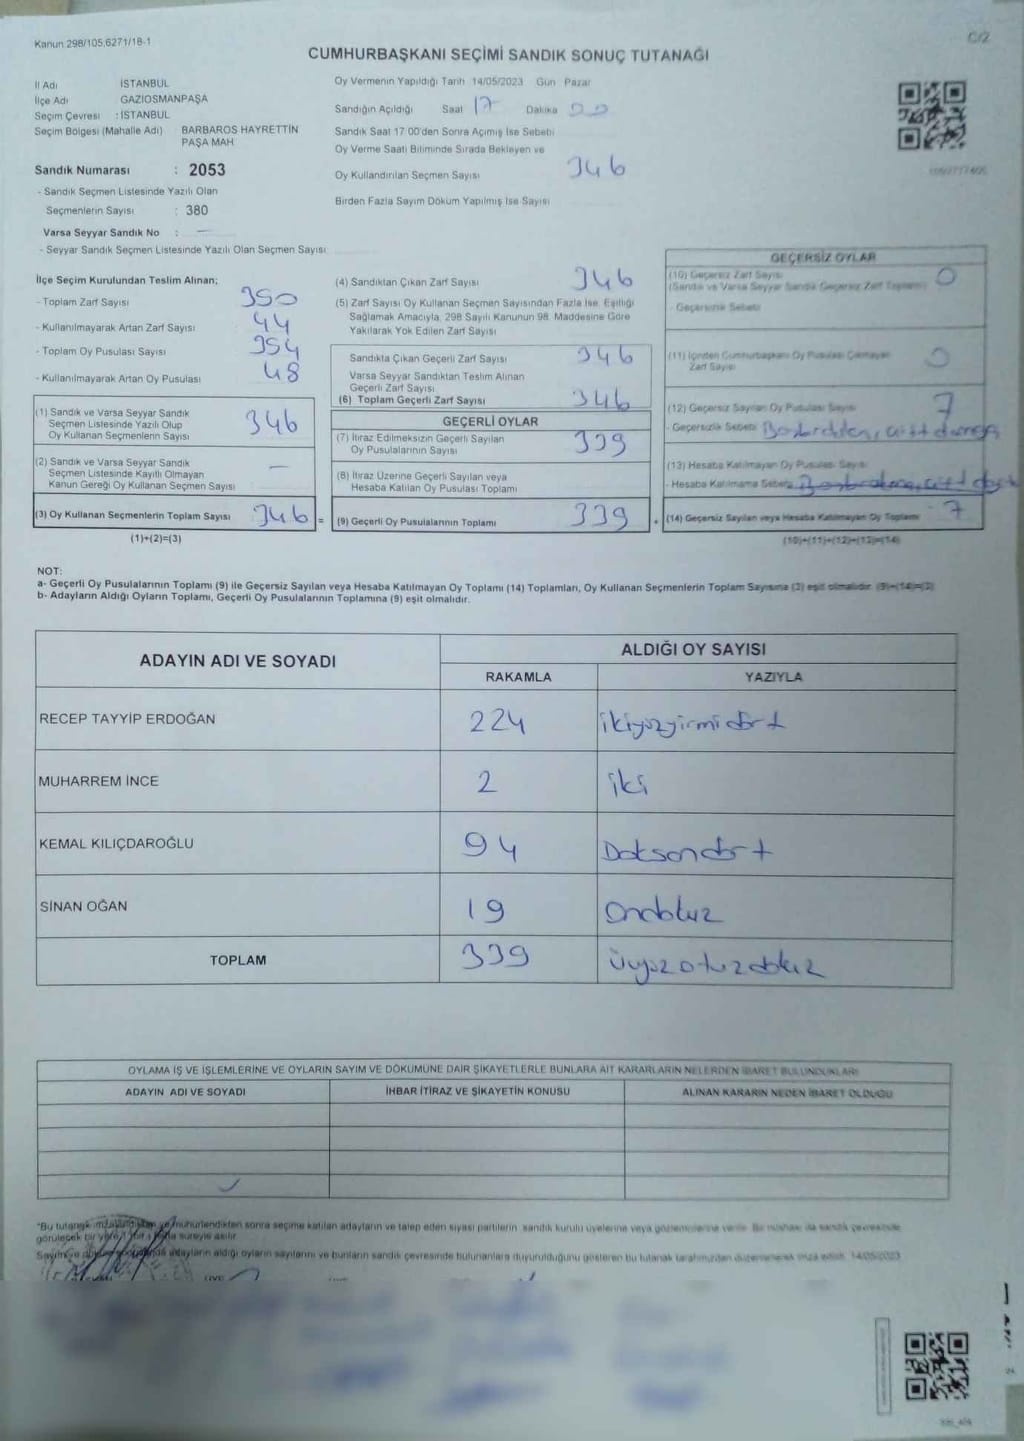 Kanun 298/105,6271/18-1
C/2
CUMHURBAŞKANI SEÇİMİ SANDIK SONUÇ TUTANAĞI
İl Adı İSTANBUL
İlçe Adı GAZİOSMANPAŞA
Seçim Çevresi : İSTANBUL
Seçim Bölgesi (Mahalle Adı) BARBAROS HAYRETTİN PAŞA MAH
Sandık Numarası : 2053
- Sandık Seçmen Listesinde Yazılı Olan
Seçmenlerin Sayısı : 380
Varsa Seyyar Sandık No : —
- Seyyar Sandık Seçmen Listesinde Yazılı Olan Seçmen Sayısı
Oy Vermenin Yapıldığı Tarih 14/05/2023 Gün Pazar
Sandığın Açıldığı Saat 17 Dakika 00
Sandık Saat 17 00'den Sonra Açımış İse Sebebi
Oy Verme Saati Bitiminde Sırada Bekleyen ve
Oy Kullandırılan Seçmen Sayısı 346
Birden Fazla Sayım Döküm Yapılmış İse Sayısı
İlçe Seçim Kurulundan Teslim Alınan;
- Toplam Zarf Sayısı 390
- Kullanılmayarak Artan Zarf Sayısı 44
- Toplam Oy Pusulası Sayısı 394
- Kullanılmayarak Artan Oy Pusulası 48
(1) Sandık ve Varsa Seyyar Sandık
Seçmen Listesinde Yazılı Olup
Oy Kullanan Seçmenlerin Sayısı 346
(2) Sandık ve Varsa Seyyar Sandık
Seçmen Listesinde Kayıtlı Olmayan
Kanun Gereği Oy Kullanan Seçmen Sayısı —
(3) Oy Kullanan Seçmenlerin Toplam Sayısı 346 =
(1)+(2)=(3)
(4) Sandıktan Çıkan Zarf Sayısı 346
(5) Zarf Sayısı Oy Kullanan Seçmen Sayısından Fazla İse, Eşitliği
Sağlamak Amacıyla, 298 Sayılı Kanunun 98. Maddesine Göre
Yakılarak Yok Edilen Zarf Sayısı
Sandıkta Çıkan Geçerli Zarf Sayısı 346
Varsa Seyyar Sandıktan Teslim Alınan
Geçerli Zarf Sayısı
(6) Toplam Geçerli Zarf Sayısı 346
GEÇERLİ OYLAR
(7) İtiraz Edilmeksizin Geçerli Sayılan
Oy Pusulalarının Sayısı 339
(8) İtiraz Üzerine Geçerli Sayılan veya
Hesaba Katılan Oy Pusulası Toplamı
(9) Geçerli Oy Pusulalarının Toplamı 339 +
GEÇERSİZ OYLAR
(10) Geçersiz Zarf Sayısı 0
(Sandık ve Varsa Seyyar Sandık Geçersiz Zarf Toplamı)
- Geçersizlik Sebebi
(11) İçinden Cumhurbaşkanı Oy Pusulası Çıkmayan
Zarf Sayısı 0
(12) Geçersiz Sayılan Oy Pusulası Sayısı 7
- Geçersizlik Sebebi
(13) Hesaba Katılmayan Oy Pusulası Sayısı
- Hesaba Katılmama Sebebi
(14) Geçersiz Sayılan veya Hesaba Katılmayan Oy Toplamı 7
(10)+(11)+(12)+(13)=(14)
NOT:
a- Geçerli Oy Pusulalarının Toplamı (9) ile Geçersiz Sayılan veya Hesaba Katılmayan Oy Toplamı (14) Toplamları, Oy Kullanan Seçmenlerin Toplam Sayısına (3) eşit olmalıdır. (9)+(14)=(3)
b- Adayların Aldığı Oyların Toplamı, Geçerli Oy Pusulalarının Toplamına (9) eşit olmalıdır.
ADAYIN ADI VE SOYADI
ALDIĞI OY SAYISI
RAKAMLA YAZIYLA
RECEP TAYYİP ERDOĞAN 224 ikiyüzyirmidört
MUHARREM İNCE 2 iki
KEMAL KILIÇDAROĞLU 94 Doksandört
SİNAN OĞAN 19 Ondokuz
TOPLAM 339 üçyüzotuzdokuz
OYLAMA İŞ VE İŞLEMLERİNE VE OYLARIN SAYIM VE DÖKÜMÜNE DAİR ŞİKAYETLERLE BUNLARA AİT KARARLARIN NELERDEN İBARET BULUNDUKLARI
ADAYIN ADI VE SOYADI İHBAR İTİRAZ VE ŞİKAYETİN KONUSU ALINAN KARARIN NEDEN İBARET OLDUĞU
"Bu tutanak imzalandıktan ve mühürlendikten sonra seçime katılan adayların ve talep eden siyasi partilerin sandık kurulu üyelerine veya gözlemcilerine verilir. Bir nüshası da sandık çevresinde
görülecek bir yere süreyle asılır.
adayların aldığı oyların sayılarını ve bunların sandık çevresinde bulunanlara duyurulduğunu gösteren bu tutanak tarafımızdan düzenlenerek imza edildi. 14/05/2023